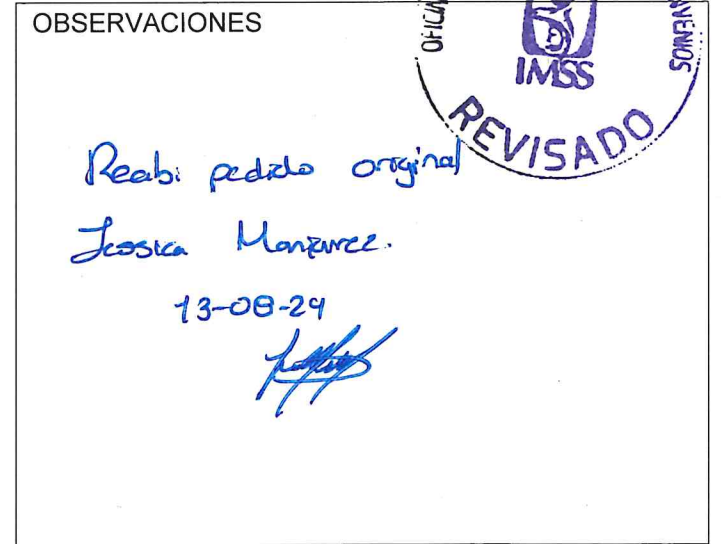 OBSERVACIONES
IMSS
REVISADO
Recibi pedido original
Jessica Manjarrez.
13-08-24